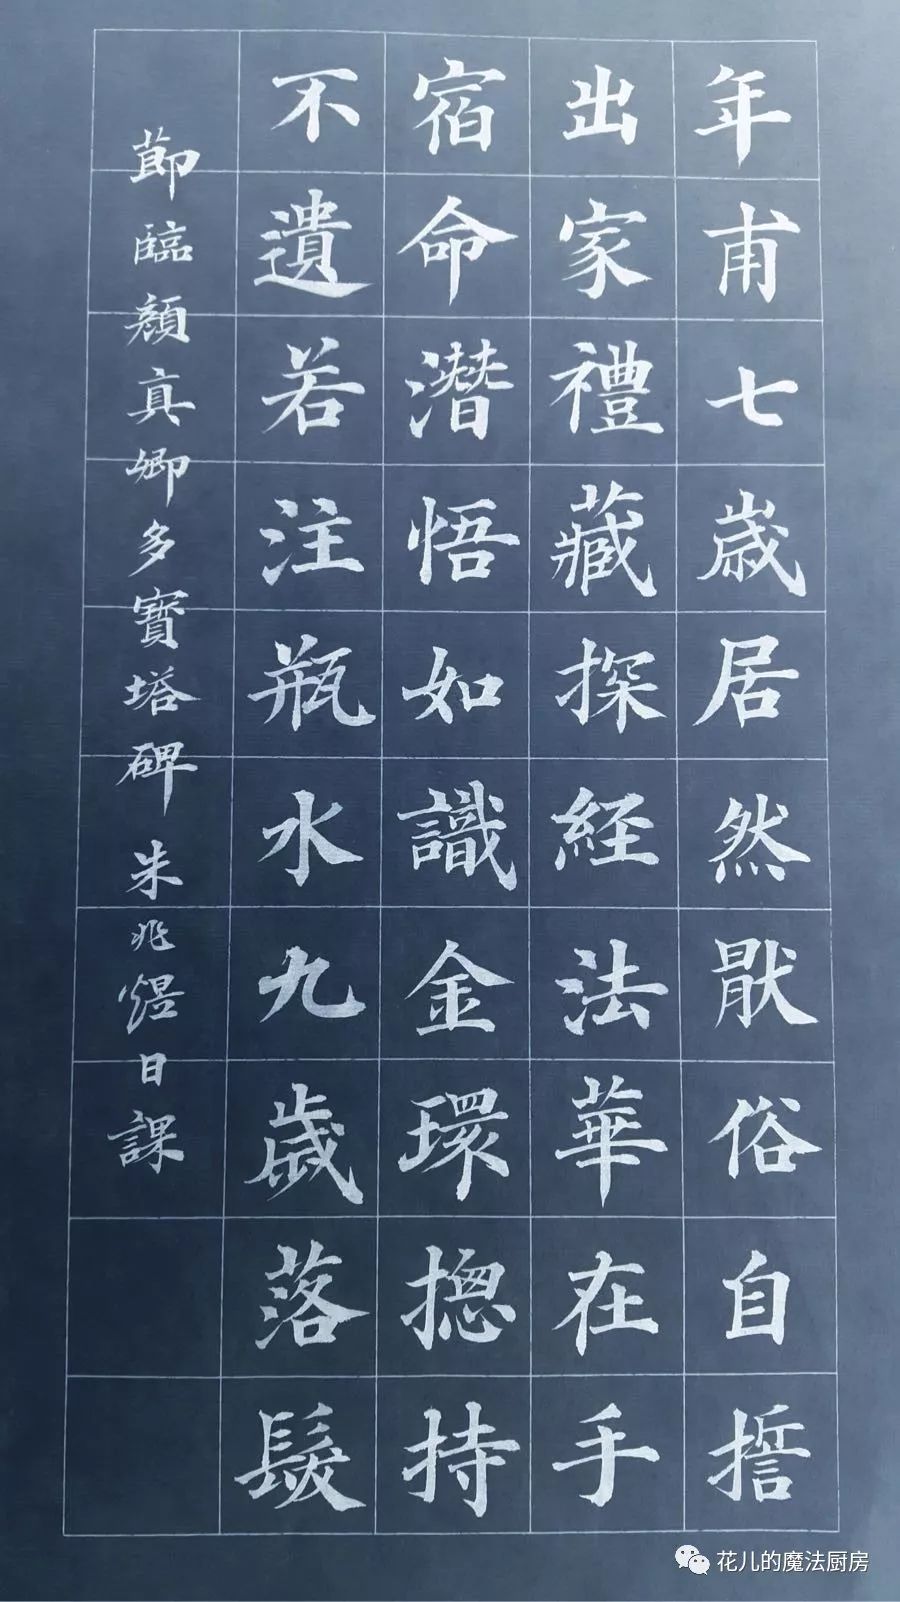 年甫七歲居然猒俗自誓
出家禮藏探経法華在手
宿命潛悟如識金環揔持
不遺若注瓶水九歲落髮
節臨顏真卿多寶塔碑 朱兆煜日課
花儿的魔法厨房